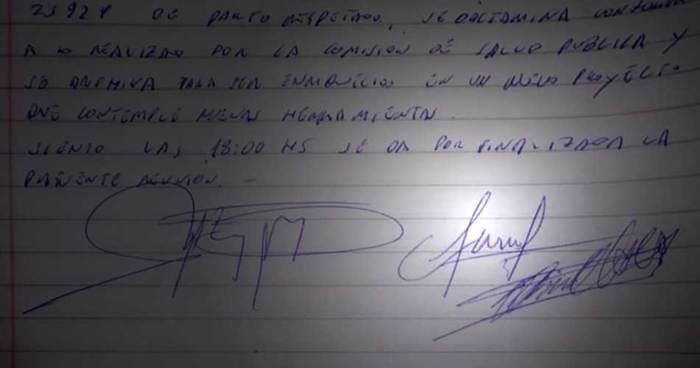 25929 DE PARTO RESPETADO, SE DICTAMINA CONFORME
A LO REALIZADO POR LA COMISION DE SALUD PUBLICA Y
SE PARA SER EN UN PROYECTO
QUE CONTEMPLE NUEVAS HERRAMIENTAS.
SIENDO LAS 18:00 HS SE DA POR FINALIZADA LA
PRESENTE REUNION. —